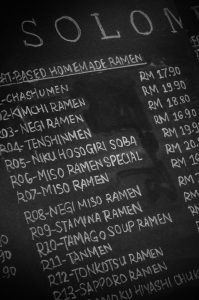 SOLOM
-BASED HOMEMADE RAMEN
1-CHASHUMEN RM 17.90
02-KIMCHI RAMEN RM 19.80
03-NEGI RAMEN RM 18.80
R04-TENSHINMEN RM 16.90
R05-NIKU HOSOGIRI SOBA RM 19.90
R06-MISO RAMEN SPECIAL RM 20
R07-MISO RAMEN RM
R08-NEGI MISO RAMEN
R09-STAMINA RAMEN
R10-TAMAGO SOUP RAMEN
R11-TANMEN
R12-TONKOTSU RAMEN
R13-SAPPORO RAMEN
HIYASHI CHUK